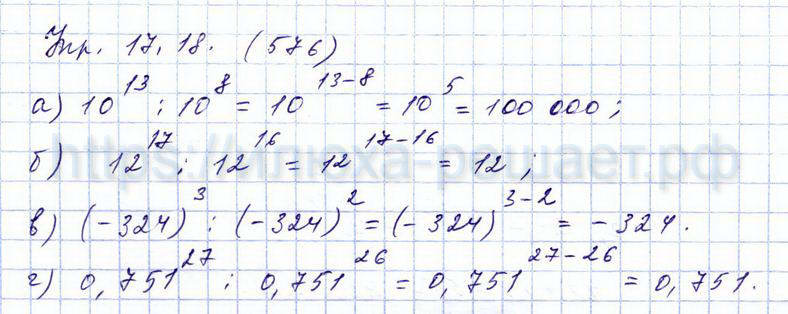 Упр. 17.18. (576)
а) 10¹³ : 10⁸ = 10¹³⁻⁸ = 10⁵ = 100 000;
б) 12¹⁷ : 12¹⁶ = 12¹⁷⁻¹⁶ = 12;
https://илюха-решает.рф
в) (-324)³ : (-324)² = (-324)³⁻² = -324.
г) 0,751²⁷ : 0,751²⁶ = 0,751²⁷⁻²⁶ = 0,751.